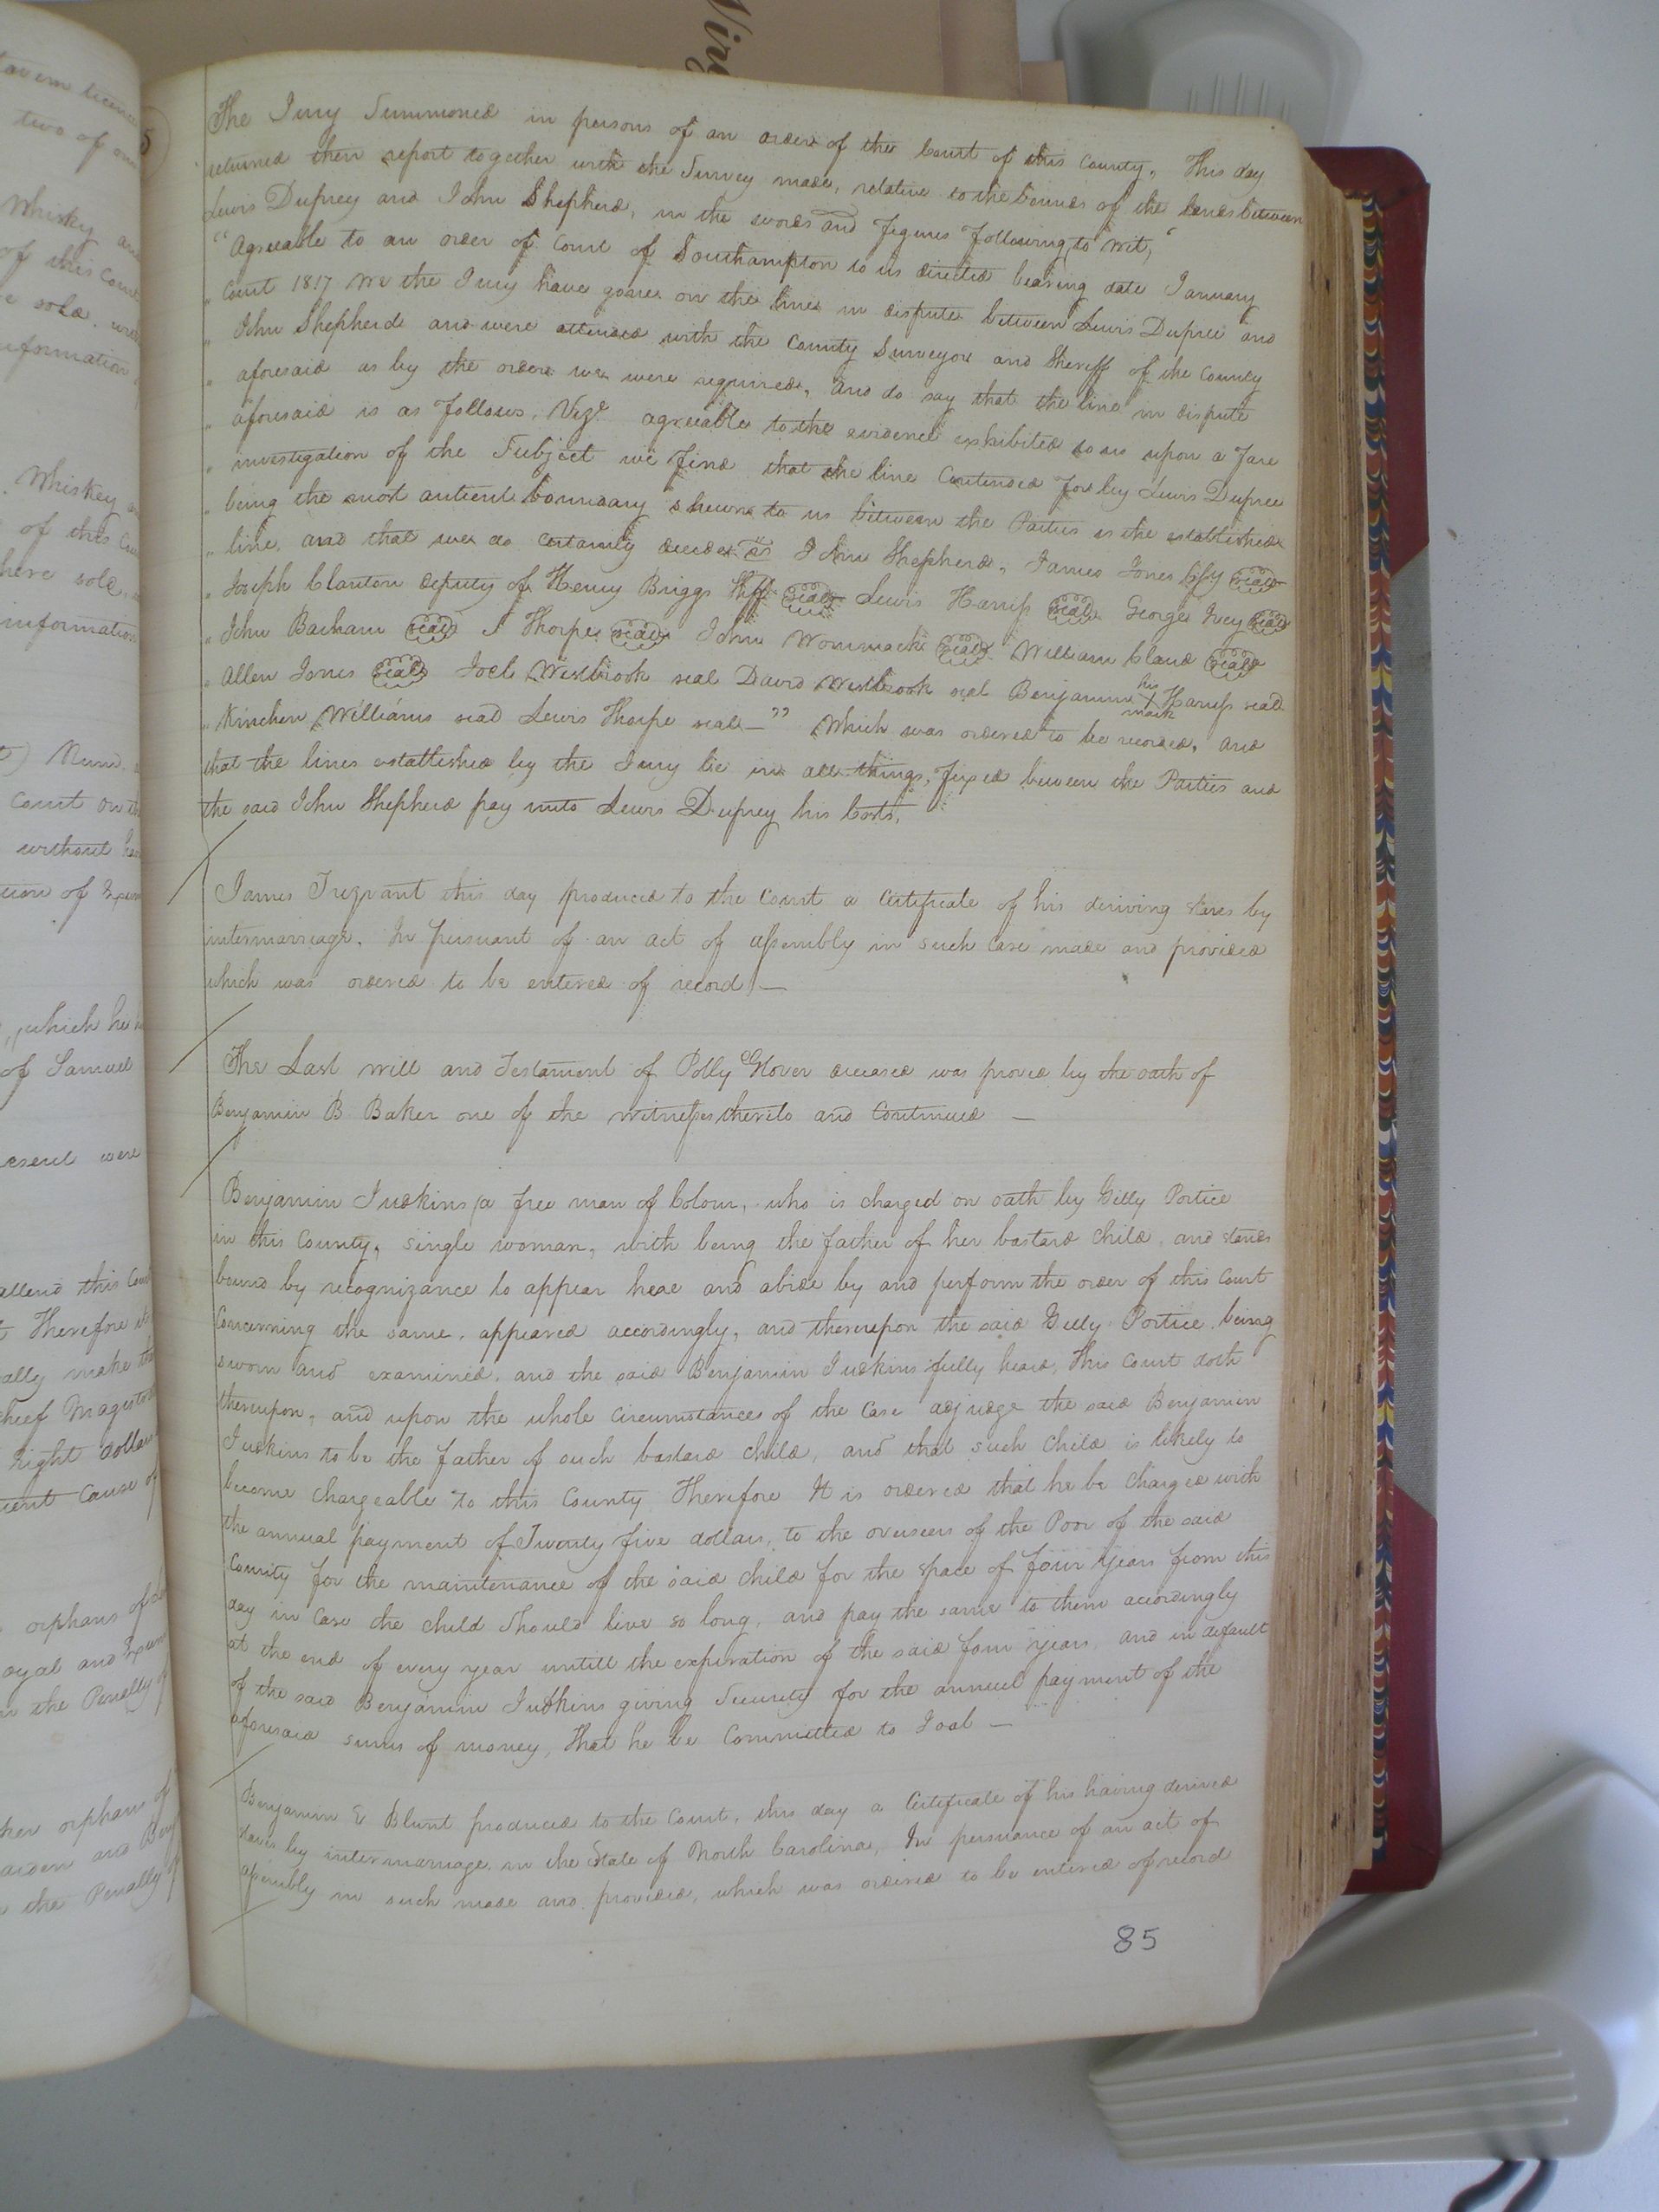 Virg
tavern licen
two of
Whisky an
of this Coun
e sold. with
nformation
Whiskey a
of this Cou
here sold,
information
Court on
without
tion of
, which he
of Samuel
esent were
attend this Court
Therefore
ally make
heef Magist
Eight dollars
ient Cause of
orphans of
oyal and
the Penalty of
her orphans of
arden and Benj
the Penalty of
5
The Jury Summoned in persons of an order of the Court of this County, This day
returned their report together with the Survey made, relative to the bounds of the lands between
Lewis Duprey and John Shepherd, in the words and figures following, to wit,
"Agreeable to an order of Court of Southampton to us directed bearing date January
" Court 1817 We the Jury have gone on the line in dispute between Lewis Dupree and
" John Shepherd and were attended with the County Surveyor and Sheriff of the County
" aforesaid as by the order we were required, and do say that the line in dispute
" aforesaid is as follows, Vizt. agreeable to the evidence exhibited to us upon a fare
" investigation of the Subject we find that the line Contended for by Lewis Dupree
" being the most antient boundary shewn to us between the Parties is the established
" line, and that we do certainly decide as John Shepherd, James Jones seal
" Joseph Clanton deputy of Henry Briggs Shff seal Lewis Harriss seal George Ivey seal
" John Barham seal J Thorpe seal John Wommack seal William Claud seal
" Allen Jones seal Joel Westbrook seal David Westbrook seal Benjamin his X mark Harriss seal
" Kinchen Williams seal Lewis Thorpe seal — " Which was ordered to be recorded, and
that the lines established by the Jury be in all things, fixed between the Parties and
the said John Shepherd pay unto Lewis Duprey his Costs,
James Trezvant this day produced to the Court a Certificate of his deriving slaves by
intermarriage, In pursuant of an act of assembly in such Case made and provided
which was ordered to be entered of record —
The Last will and Testament of Polly Glover deceased was proved by the oath of
Benjamin B Baker one of the witnesses thereto and Continued —
Benjamin Judkins a free man of Colour, who is charged on oath by Gilly Portice
in this County, single woman, with being the father of her bastard Child, and stands
bound by recognizance to appear hear and abide by and perform the order of this Court
Concerning the same, appeared accordingly, and thereupon the said Gilly Portice being
sworn and examined, and the said Benjamin Judkins fully heard, This Court doth
thereupon, and upon the whole Circumstances of the Case adjudge the said Benjamin
Judkins to be the father of such bastard Child, and that such Child is likely to
become chargeable to this County Therefore It is ordered that he be charged with
the annual payment of Twenty five dollars, to the overseers of the Poor of the said
County for the maintenance of the said child for the space of four years from this
day in Case the child Should live so long, and pay the same to them accordingly
at the end of every year untill the expiration of the said four years, and in default
of the said Benjamin Judkins giving Security for the annual payment of the
aforesaid sums of money, that he be Committed to Joal —
Benjamin E Blunt produced to the Court, this day a Certificate of his having derived
slaves by intermarriage in the State of North Carolina, In persuance of an act of
assembly in such made and provided, which was ordered to be entered of record
85